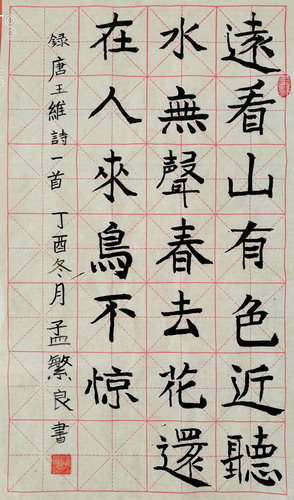 遠看山有色近聽
水無聲春去花還
在人來鳥不惊
録唐王維詩一首 丁酉冬月 孟繁良書